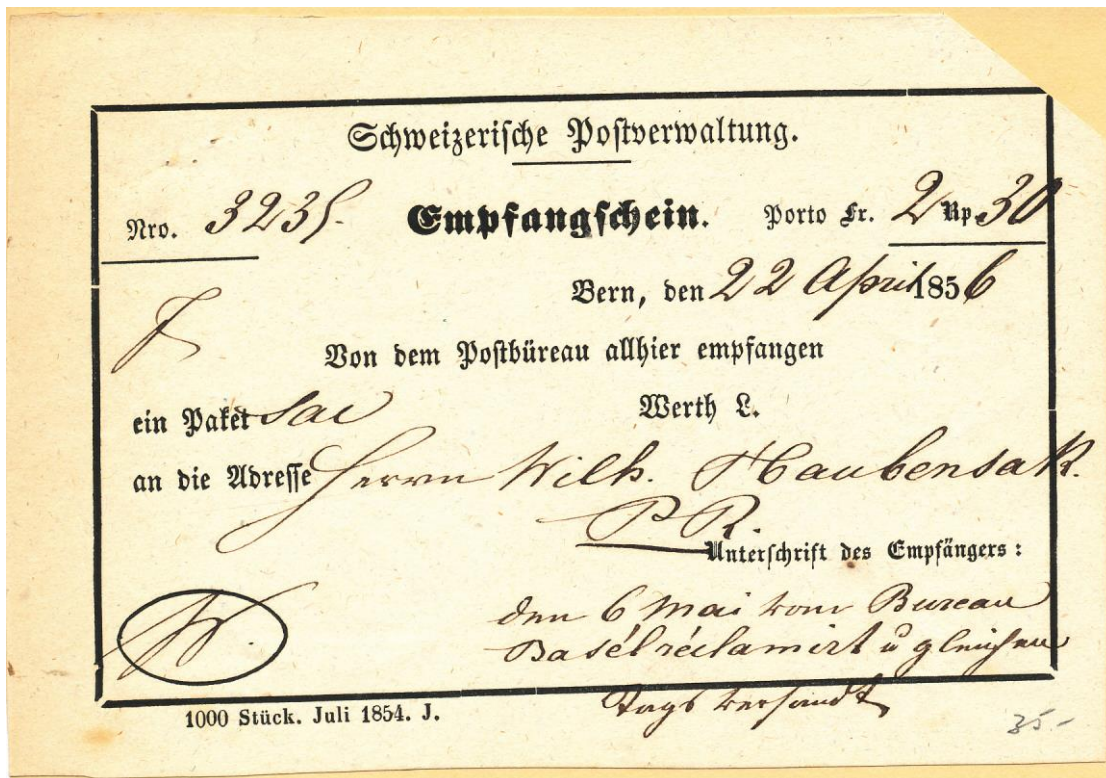 Schweizerische Postverwaltung.
Nro. 3235. Empfangschein. Porto Fr. 2 Rp. 30
Bern, den 22 April 1856
Von dem Postbüreau allhier empfangen
ein Paket Sac Werth L.
an die Adresse Herrn Wilh. Haubensak.
P.R.
Unterschrift des Empfängers:
den 6 Mai vom Bureau
Basel réclamirt u gleichen
Tags versandt
1000 Stück. Juli 1854. J.
35.-